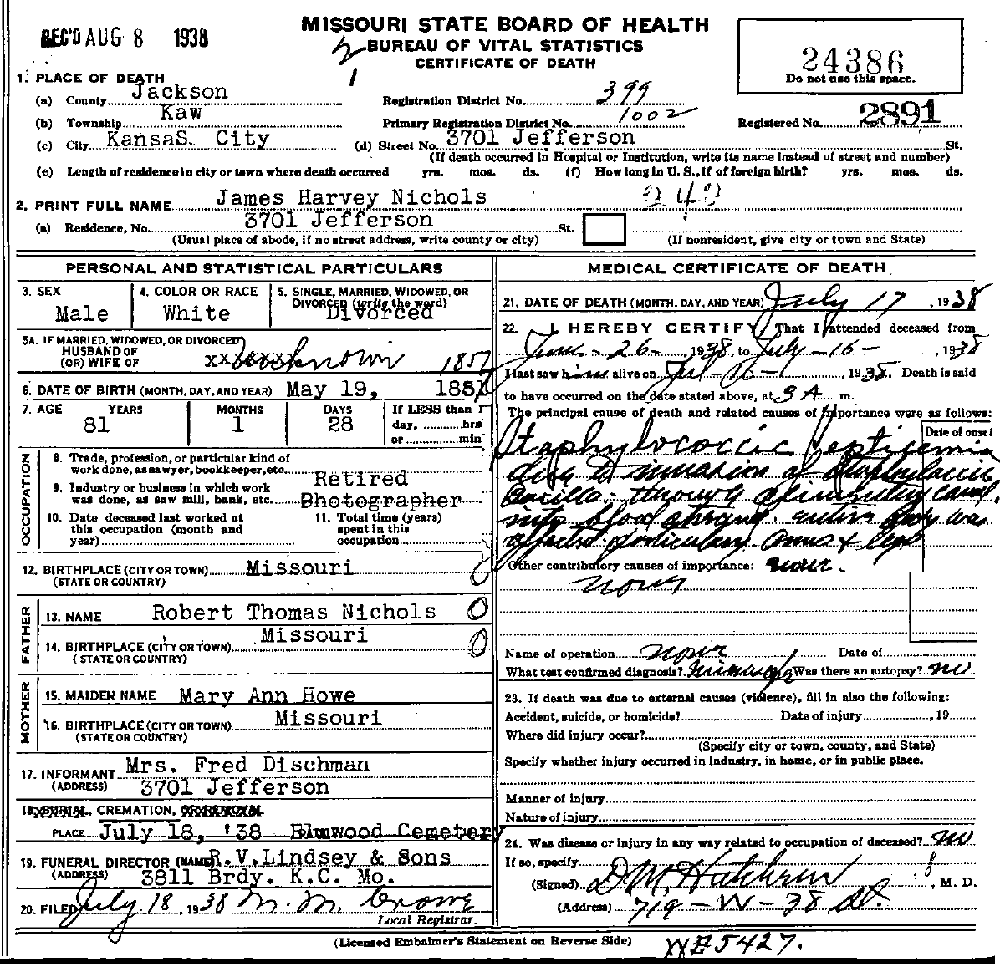 REC'D AUG 8 1938
MISSOURI STATE BOARD OF HEALTH
BUREAU OF VITAL STATISTICS
CERTIFICATE OF DEATH
24386
Do not use this space.
1. PLACE OF DEATH
(a) County Jackson Registration District No. 399
(b) Township Kaw Primary Registration District No. 1002 Registered No. 2891
(c) City KansaS City (d) Street No. 3701 Jefferson St.
(If death occurred in Hospital or Institution, write its name instead of street and number)
(e) Length of residence in city or town where death occurred yrs. mos. ds. (f) How long in U. S., if of foreign birth? yrs. mos. ds.
2. PRINT FULL NAME James Harvey Nichols
(a) Residence, No. 3701 Jefferson St.
(Usual place of abode, if no street address, write county or city) (If nonresident, give city or town and State)
PERSONAL AND STATISTICAL PARTICULARS
3. SEX Male
4. COLOR OR RACE White
5. SINGLE, MARRIED, WIDOWED, OR DIVORCED (write the word) Divorced
5A. IF MARRIED, WIDOWED, OR DIVORCED
HUSBAND OF
(OR) WIFE OF unknown 1857
6. DATE OF BIRTH (MONTH, DAY, AND YEAR) May 19, 1857
7. AGE YEARS 81 MONTHS 1 DAYS 28 If LESS than 1 day, hrs or min
OCCUPATION
8. Trade, profession, or particular kind of work done, as sawyer, bookkeeper, etc. Retired
9. Industry or business in which work was done, as saw mill, bank, etc. Photographer
10. Date deceased last worked at this occupation (month and year)
11. Total time (years) spent in this occupation
12. BIRTHPLACE (CITY OR TOWN) Missouri
(STATE OR COUNTRY)
FATHER
13. NAME Robert Thomas Nichols
14. BIRTHPLACE (CITY OR TOWN) Missouri
(STATE OR COUNTRY)
MOTHER
15. MAIDEN NAME Mary Ann Howe
16. BIRTHPLACE (CITY OR TOWN) Missouri
(STATE OR COUNTRY)
17. INFORMANT Mrs. Fred Dischman
(ADDRESS) 3701 Jefferson
18. BURIAL, CREMATION, OR REMOVAL
PLACE July 18, '38 Elmwood Cemetery
19. FUNERAL DIRECTOR (NAME) R. V. Lindsey & Sons
(ADDRESS) 3811 Brdy. K.C. Mo.
20. FILED July 18, 1938 M. M. Crowe
Local Registrar
MEDICAL CERTIFICATE OF DEATH
21. DATE OF DEATH (MONTH, DAY, AND YEAR) July 17, 1938
22. I HEREBY CERTIFY, That I attended deceased from
June - 26 - 1938, to July - 16 - 1938
I last saw him alive on 16 - 1938. Death is said
to have occurred on the date stated above, at 9 A m.
The principal cause of death and related causes of importance were as follows:
Date of onset
Staphylococcic Septicemia
due to invasion of
blood entire body was
affected particularly arms & legs
Other contributory causes of importance: none.
none
Name of operation none Date of
What test confirmed diagnosis? Was there an autopsy? no
23. If death was due to external causes (violence), fill in also the following:
Accident, suicide, or homicide? Date of injury , 19
Where did injury occur?
(Specify city or town, county, and State)
Specify whether injury occurred in industry, in home, or in public place.
Manner of injury
Nature of injury
24. Was disease or injury in any way related to occupation of deceased? no
If so, specify
(Signed) , M. D.
(Address) 719 - W - 38 St.
(Licensed Embalmer's Statement on Reverse Side)
5427.